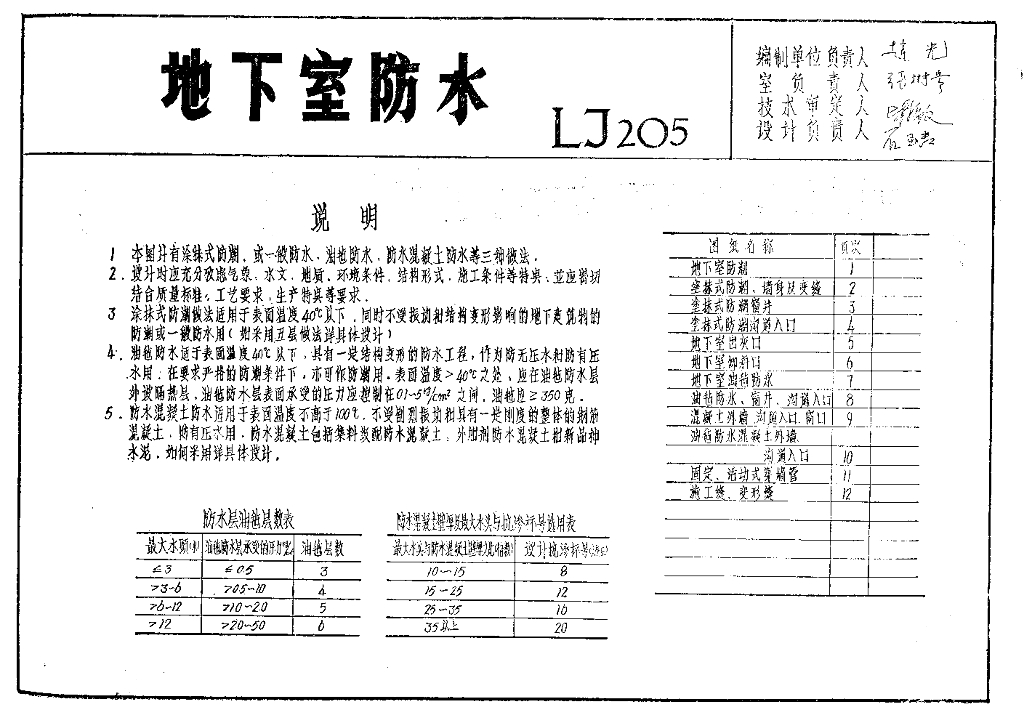 地下室防水
LJ205
编制单位负责人
室负责人
技术审定人
设计负责人
说明
1 本图计有涂抹式防潮，或一般防水、油毡防水、防水混凝土防水等三种做法。
2．设计时应充分考虑气象、水文、地质、环境条件、结构形式、施工条件等特点，并应密切
结合质量标准、工艺要求、生产特点等要求。
3 涂抹式防潮做法适用于表面温度40℃以下，同时不受振动和结构变形影响的地下建筑物的
防潮或一般防水用（如采用五层做法详具体设计）
4．油毡防水适于表面温度40℃以下，具有一定结构变形的防水工程，作为防无压水和防有压
水用；在要求严格的防潮条件下，亦可作防潮用。表面温度＞40℃之处，应在油毡防水层
外设隔热层，油毡防水层表面承受的压力应控制在0.1~5 kg/cm² 之间，油毡应≥350克。
5．防水混凝土防水适用于表面温度不高于100℃，不受剧烈振动和具有一定刚度的整体的钢筋
混凝土，防有压水用，防水混凝土包括集料级配防水混凝土、外加剂防水混凝土和新品种
水泥，如何采用详具体设计。
图纸名称 页次
地下室防潮 1
塗抹式防潮、墙身及变缝 2
塗抹式防潮窗井 3
塗抹式防潮沟道入口 4
地下室出灰口 5
地下室卸料口 6
地下室油毡防水 7
油毡防水、窗井、沟道入口 8
混凝土外墙沟道入口、窗口 9
油毡防水混凝土外墙
沟道入口 10
固定、活动式穿墙管 11
施工缝、变形缝 12
防水层油毡层数表
最大水头(m) 油毡防水层承受的压力 油毡层数
≤3 ≤0.5 3
>3-6 >0.5-1.0 4
>6-12 >1.0-2.0 5
>12 >2.0-5.0 6
防水混凝土壁厚及最大水头与抗渗标号选用表
最大水头与防水混凝土壁厚之比 设计抗渗标号
10-15 8
15-25 12
25-35 16
35以上 20